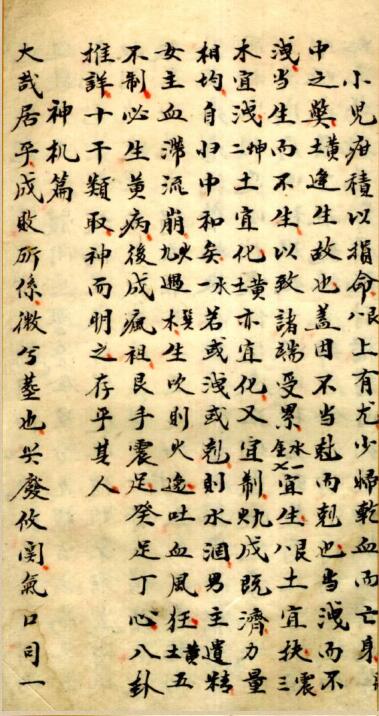 小兒疳積以損命艮八上有尤少婦乾血而亡身
中之奬黄土逢生故也蓋因不当尅而剋也当洩而不
洩当生而不生以致諸端受累水一金七宜生艮八土宜扶震三
木宜洩坤二土宜化黄土亦宜化又宜制火九成既濟力量
相均自归中和矣水一若或洩或剋則水涸男主遺精
女主血滯流崩火九遇巽木生吹則火逸吐血風狂黄土五
不制必生黄病後成瘋祖艮手震足癸足丁心八卦
推詳十干類取神而明之存乎其人
神机篇
大哉居乎成敗所係微兮也廢攸関氣口司一